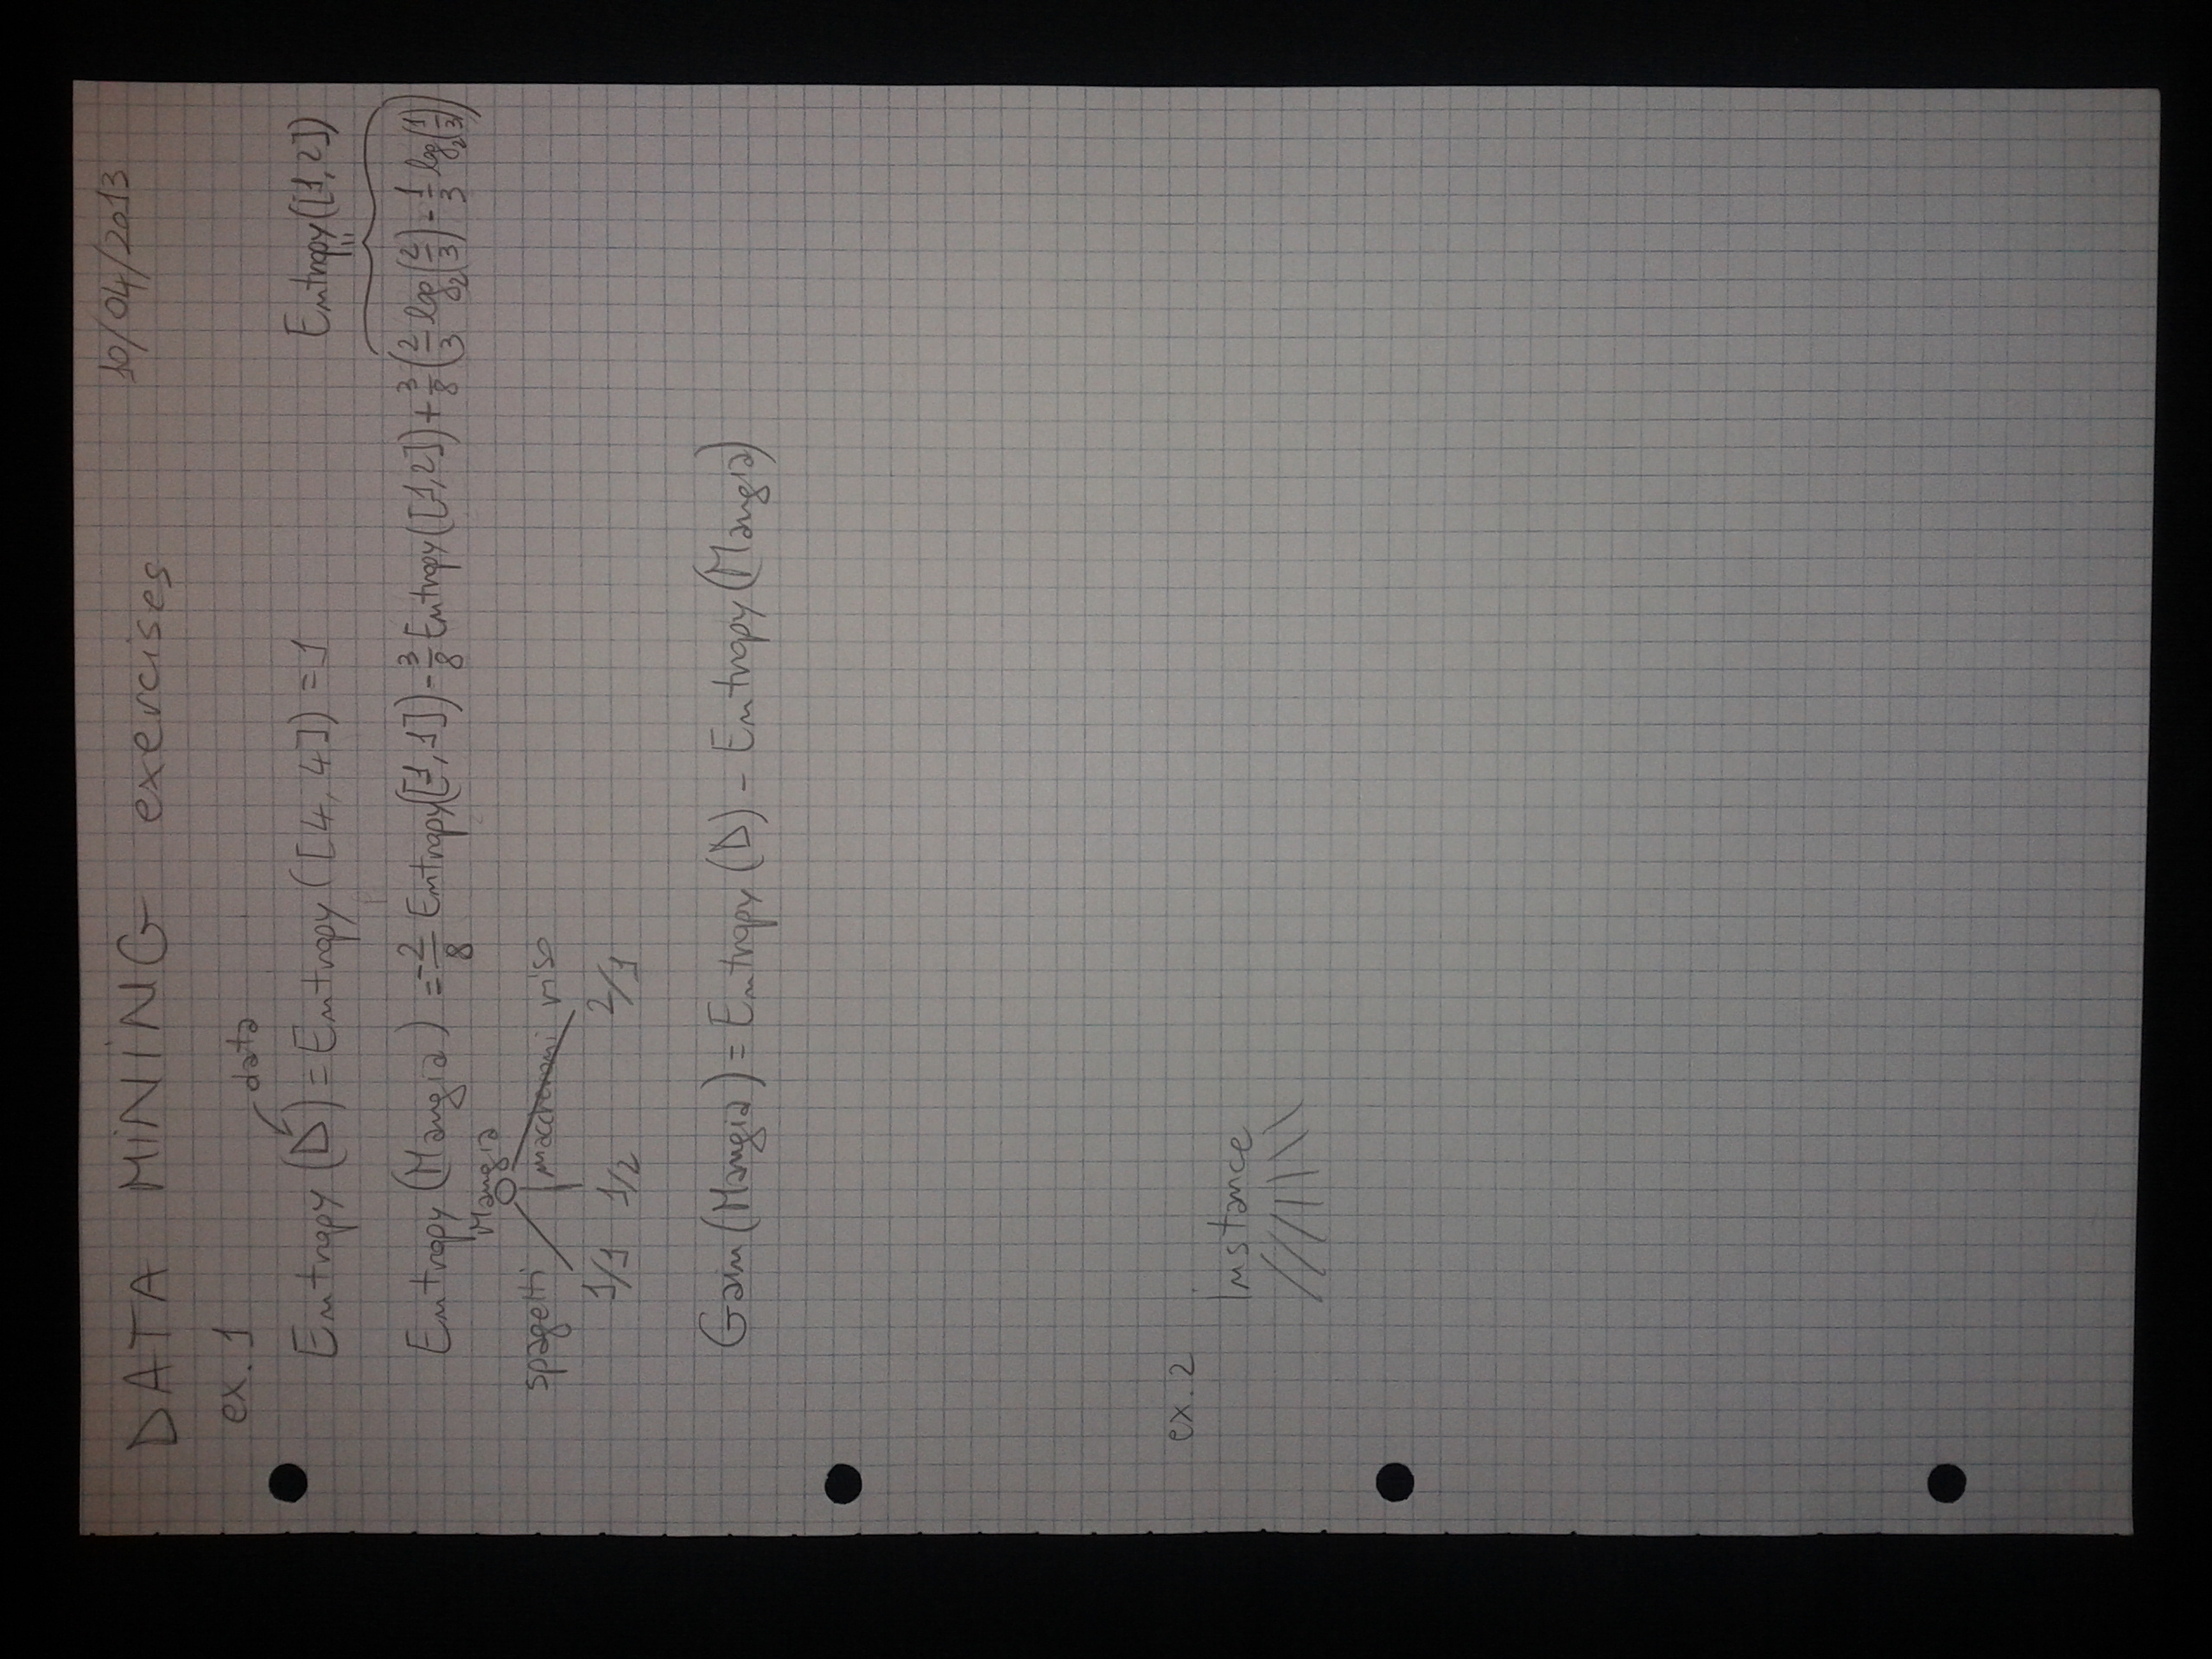 DATA MINING exercises 10/04/2013
ex. 1
data
Entropy (D) = Entropy ([4, 4]) = 1
Entropy([1,2])
=
Entropy (Mangia) = -2/8 Entropy([1,1]) - 3/8 Entropy([1,2]) + 3/8 (2/3 log2(2/3) - 1/3 log2(1/3))
Mangia
spagetti maccheroni riso
1/1 1/2 2/1
Gain (Mangia) = Entropy (D) - Entropy (Mangia)
ex. 2
Instance